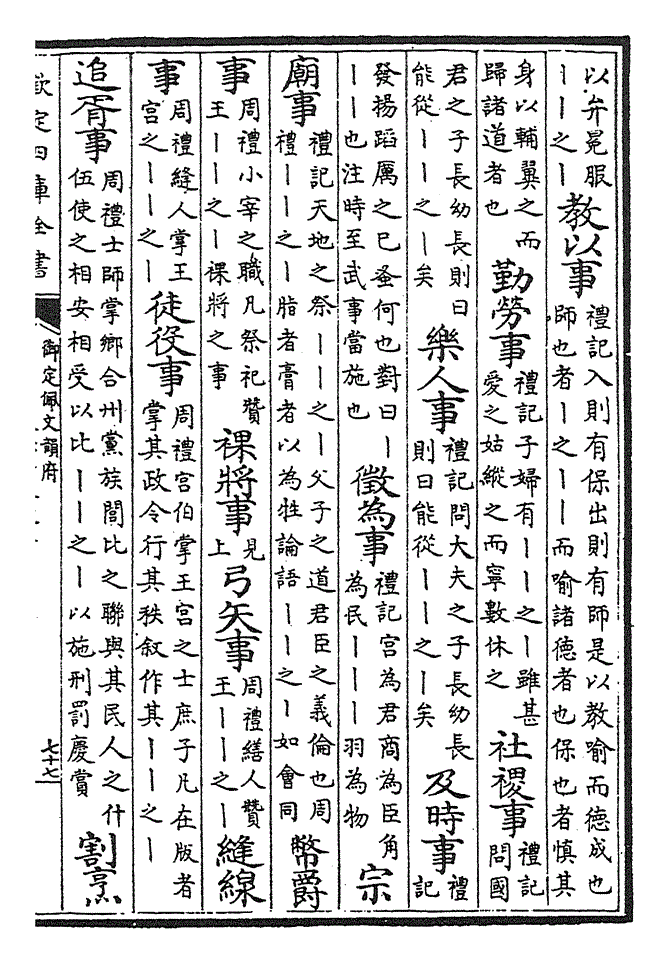 以弁冕服
｜｜之｜
教以事
禮記入則有保出則有師是以教喻而德成也
師也者｜之｜｜而喻諸德者也保也者慎其
身以輔翼之而
歸諸道者也
勤勞事
禮記子婦有｜｜之｜雖甚
愛之姑縱之而寧數休之
社稷事
禮記
問國
君之子長幼長則曰
能從｜｜之｜矣
樂人事
禮記問大夫之子長幼長
則曰能從｜｜之｜矣
及時事
禮
記
發揚蹈厲之已蚤何也對曰｜
｜｜也注時至武事當施也
徵為事
禮記宮為君商為臣角
為民｜｜｜羽為物
宗
廟事
禮記天地之祭｜｜之｜父子之道君臣之義倫也周
禮｜｜之｜脂者膏者以為牲論語｜｜之｜如會同
幣爵
事
周禮小宰之職凡祭祀贊
王｜｜之｜祼將之事
祼將事
見
上
弓矢事
周禮繕人贊
王｜｜之｜
縫線
事
周禮縫人掌王
宮之｜｜之｜
徒役事
周禮宮伯掌王宮之士庶子凡在版者
掌其政令行其秩叙作其｜｜之｜
追胥事
周禮士師掌鄉合州黨族閭比之聯與其民人之什
伍使之相安相受以比｜｜之｜以施刑罰慶賞
割烹
欽定四庫全書
御定佩文韻府
七十七